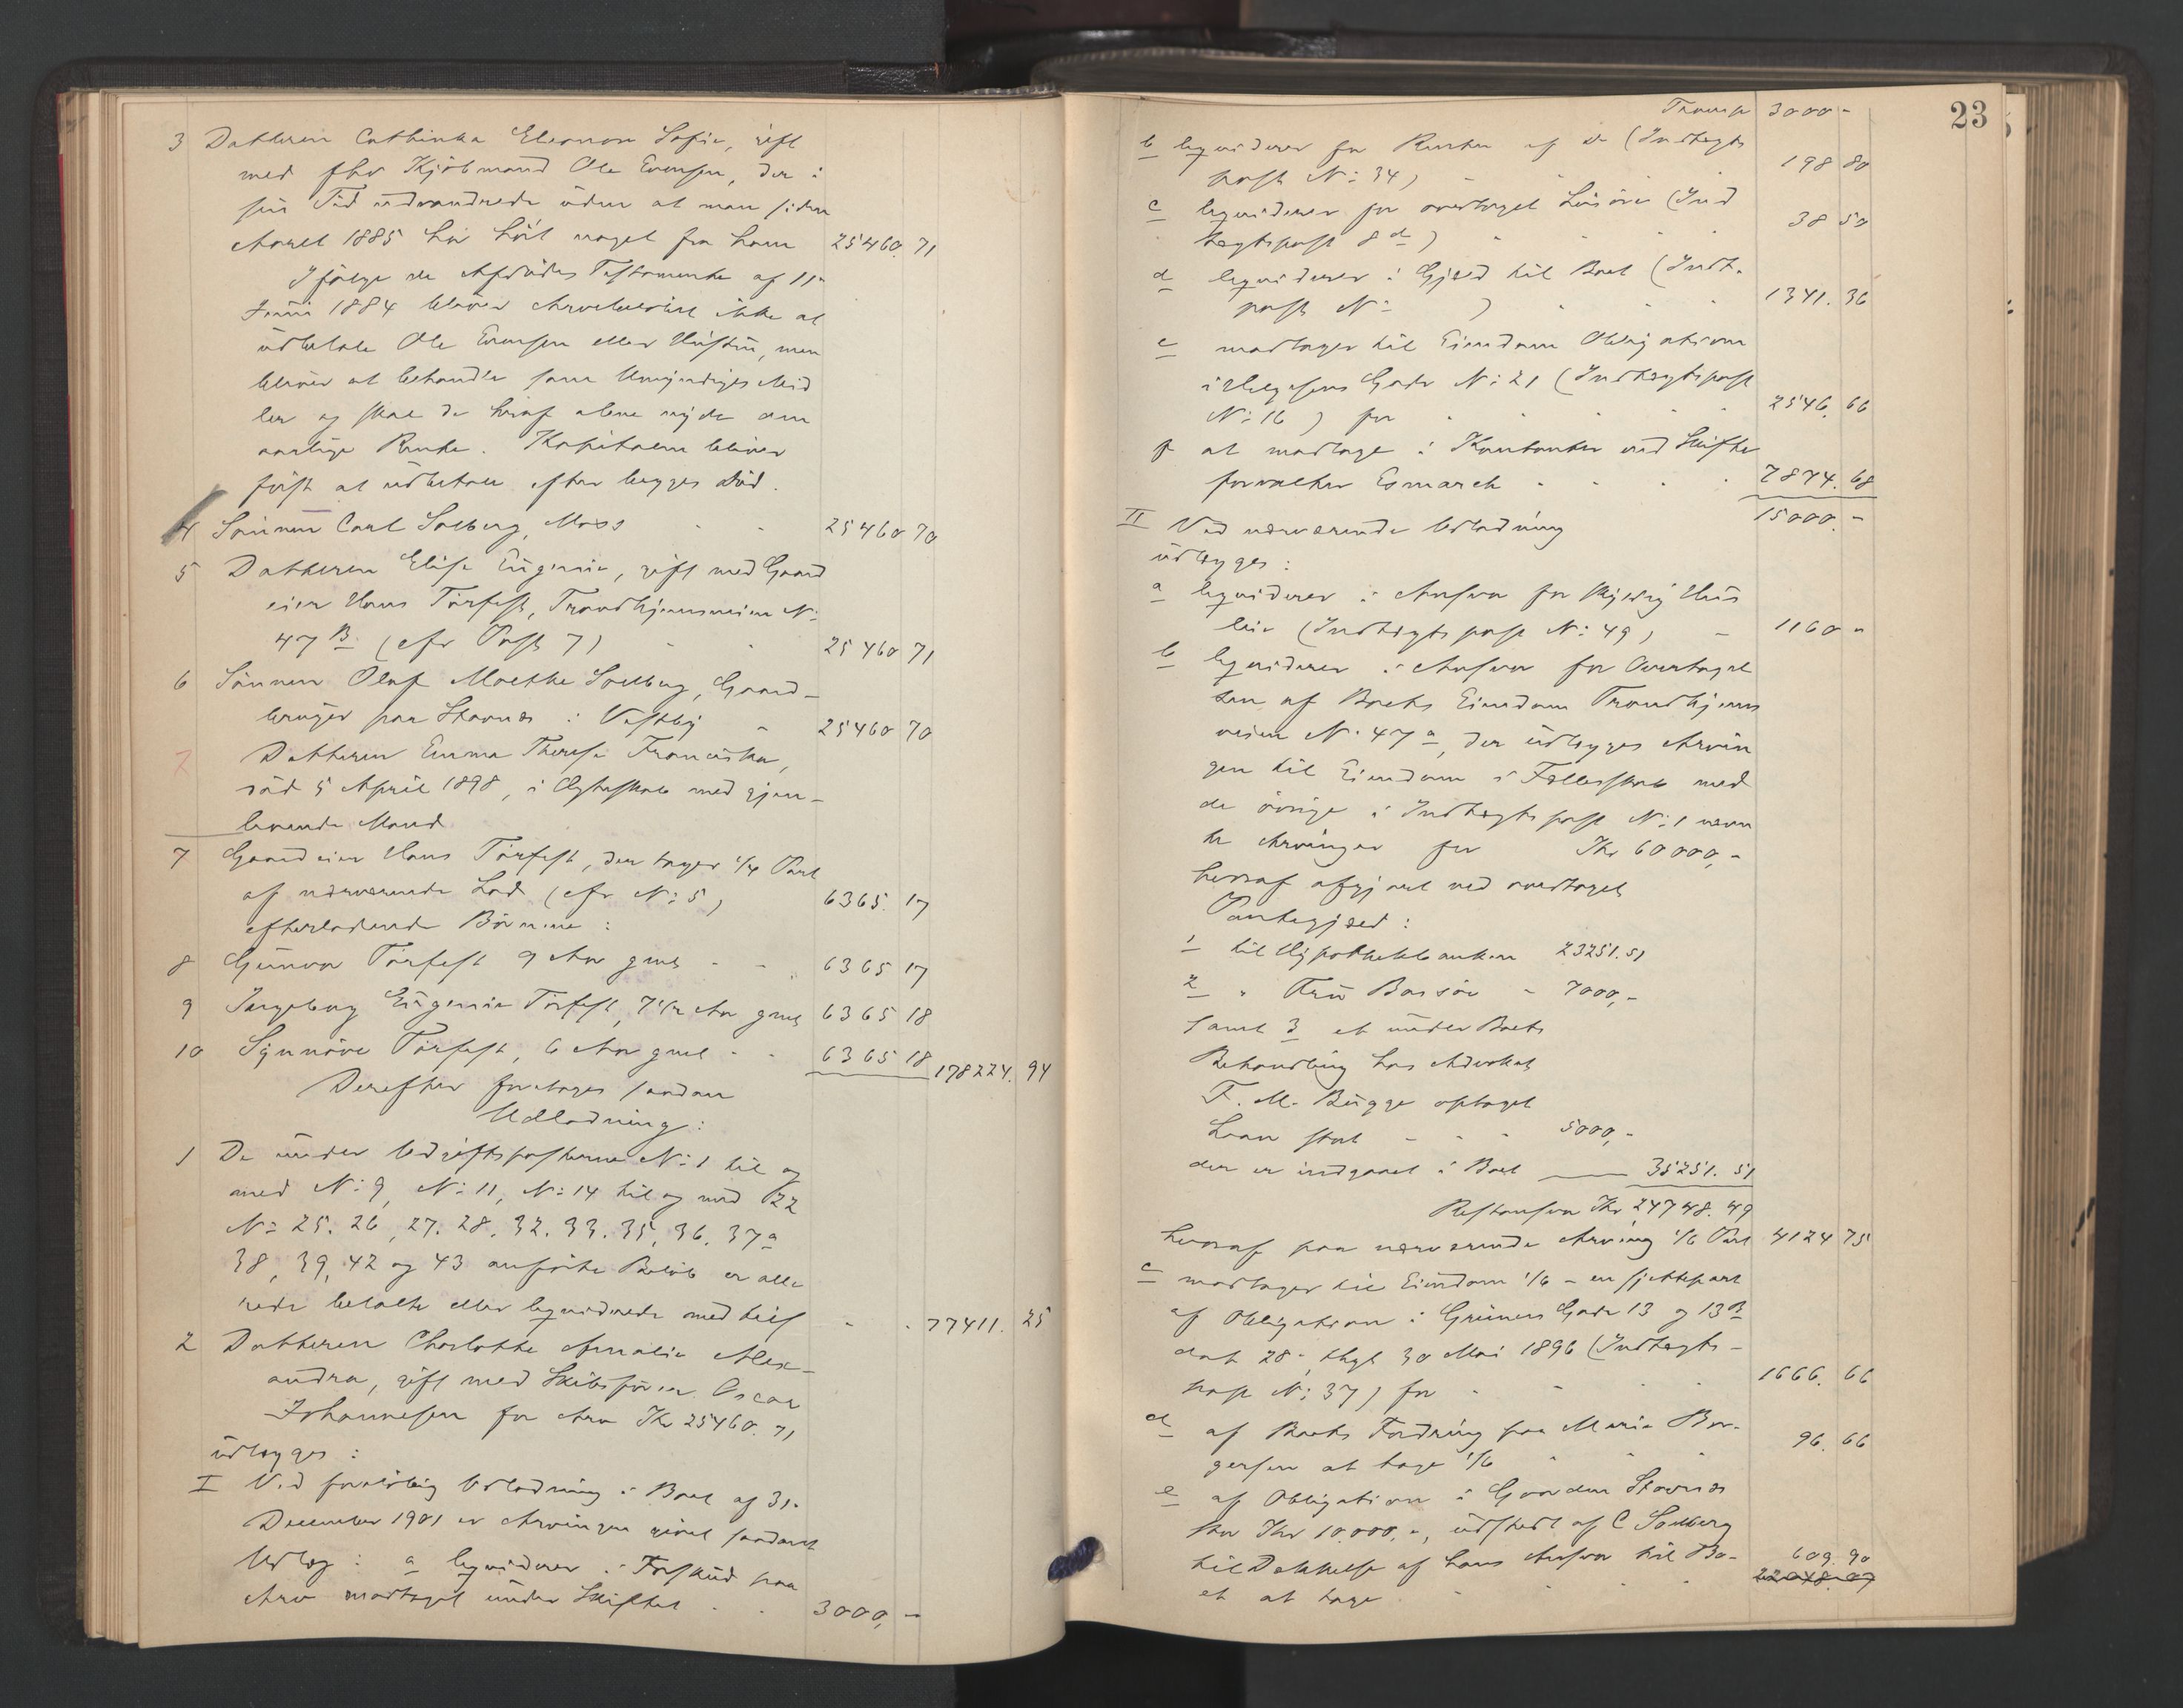 3 Datteren Cathinka Eleonora Sofie, gift
med fhv Kjöbmand Ole Evensen, der i
sin Tid udvandrede uden at man siden
Aaret 1885 har hört noget fra ham 25460. 71
Ifölge de Afdödes Testamente af 11-
Juni 1884 bliver Arvebelöbet ikke at
udbetale Ole Evensen eller Hustru, men
bliver at behandle som Umyndiges Mid
ler og skal de heraf alene nyde den
aarlige Rente. Kapitalen bliver
först at udbetale efter begges Död.
4 Sönnen Carl Solberg, Moss - - 25460 70
5 Datteren Elise Eugenie, gift med Gaard
eier Hans Törfest, Trondhjemsveien N:
47 B (cfr Post 7) - - 25460 71
6 Sönnen Olaf Moethe Solberg, Gaard-
bruger paa Stavnes i Vestby - 25460 70
7 Datteren Emma Therese Franciska,
död 5 April 1898, i Ægteskab med gjen-
levende Mand
7 Gaardeier Hans Törfest, der tager 1/4 Part
af nærværende Lod (cfr N: 5) 6365. 17
efterladende Börnene:
8 Gunvor Törfest 9 Aar gml - - 6365 17
9 Ingeborg Eugenie Törfest, 7 1/2 Aar gml 6365 18
10 Synnöve Törfest, 6 Aar gml - - 6365 18 178224. 94
Derefter foretages saadan
Udlodning:
1 De under Udgiftsposterne N: 1 til og
med N: 9, N: 11, N: 14 til og med 22
N: 25. 26, 27. 28. 32. 33. 35, 36. 37a
38, 39, 42 og 43 anförte Belöb er alle
rede betalte eller liqviderede med tils - - 77411. 25
2 Datteren Charlotte Amalie Alex-
andra, gift med Skibsförer Oscar
Johannesen for Arv Kr 25460. 71
udlægges:
I Ved foreløbig Udlodning i Boet af 31-
December 1901 er Arvingen givet saadant
Udlæg: a liqviderer i Forskud paa
Arv modtaget under Skiftet - - 3000, -
23
Transp 3000 -
b liqviderer for Renter af do (Indtægts
post N: 34) 198 80
c liqviderer for overtaget Lösöre (Ind
tægtspost 8 d) - - - 38 50
d liqviderer i Gjæld til Boet (Indt.
post N: ) - - - 1341. 36
e modtager til Eiendom Obligationen
i Helgesens Gade N: 21 (Indtægtspost
N: 16) for - - - 2546. 66
f at modtage i Kontanter ved Skifte
forvalter Esmarch - - - 7874. 68
II Ved nærværende Udlodning 15000. -
udlægges:
a liqviderer i Ansvar for skyldig Hus
leie (Indtægtspost N: 49) - 1160 -
b liqviderer i Ansvar for Overtagel
sen af Boets Eiendom Trondhjems
veien N: 47 a, der udlægges Arvin
gen til Eiendom i Fællesskab med
de övrige i Indtægtspost N: 1 nævn
te Arvinger for Kr 60000, -
hvoraf afgjort ved overtaget
Pantegjæld:
1 til Hypothekbanken 23251. 51
2 " Fru - 7000, -
samt 3 et under Boets
Behandling hos Advokat
F. M. Bugge optaget
Laan stort - - - 5000, -
der er indgaaet i Boet 35251. 51
Restansvar Kr 24748. 49
hvoraf paa nærværende Arving 1/6 Part 4124 75
c modtager til Eiendom 1/6 - en sjettepart
af Obligation i Grüners Gade 13 og 13 B
dat 28- thgl 30 Mai 1896 (Indtægts-
post N: 37) for - - - 1666. 66
d af Boets Fordring paa Marie Bor-
gersen at tage 1/6 - - 96. 66
e af Obligation i Gaarden Stavnes
stor Kr 10.000, -, udstedt af C Solberg
til Dækkelse af hans Ansvar til Bo- 609. 90
et at tage - - - 22048. 07